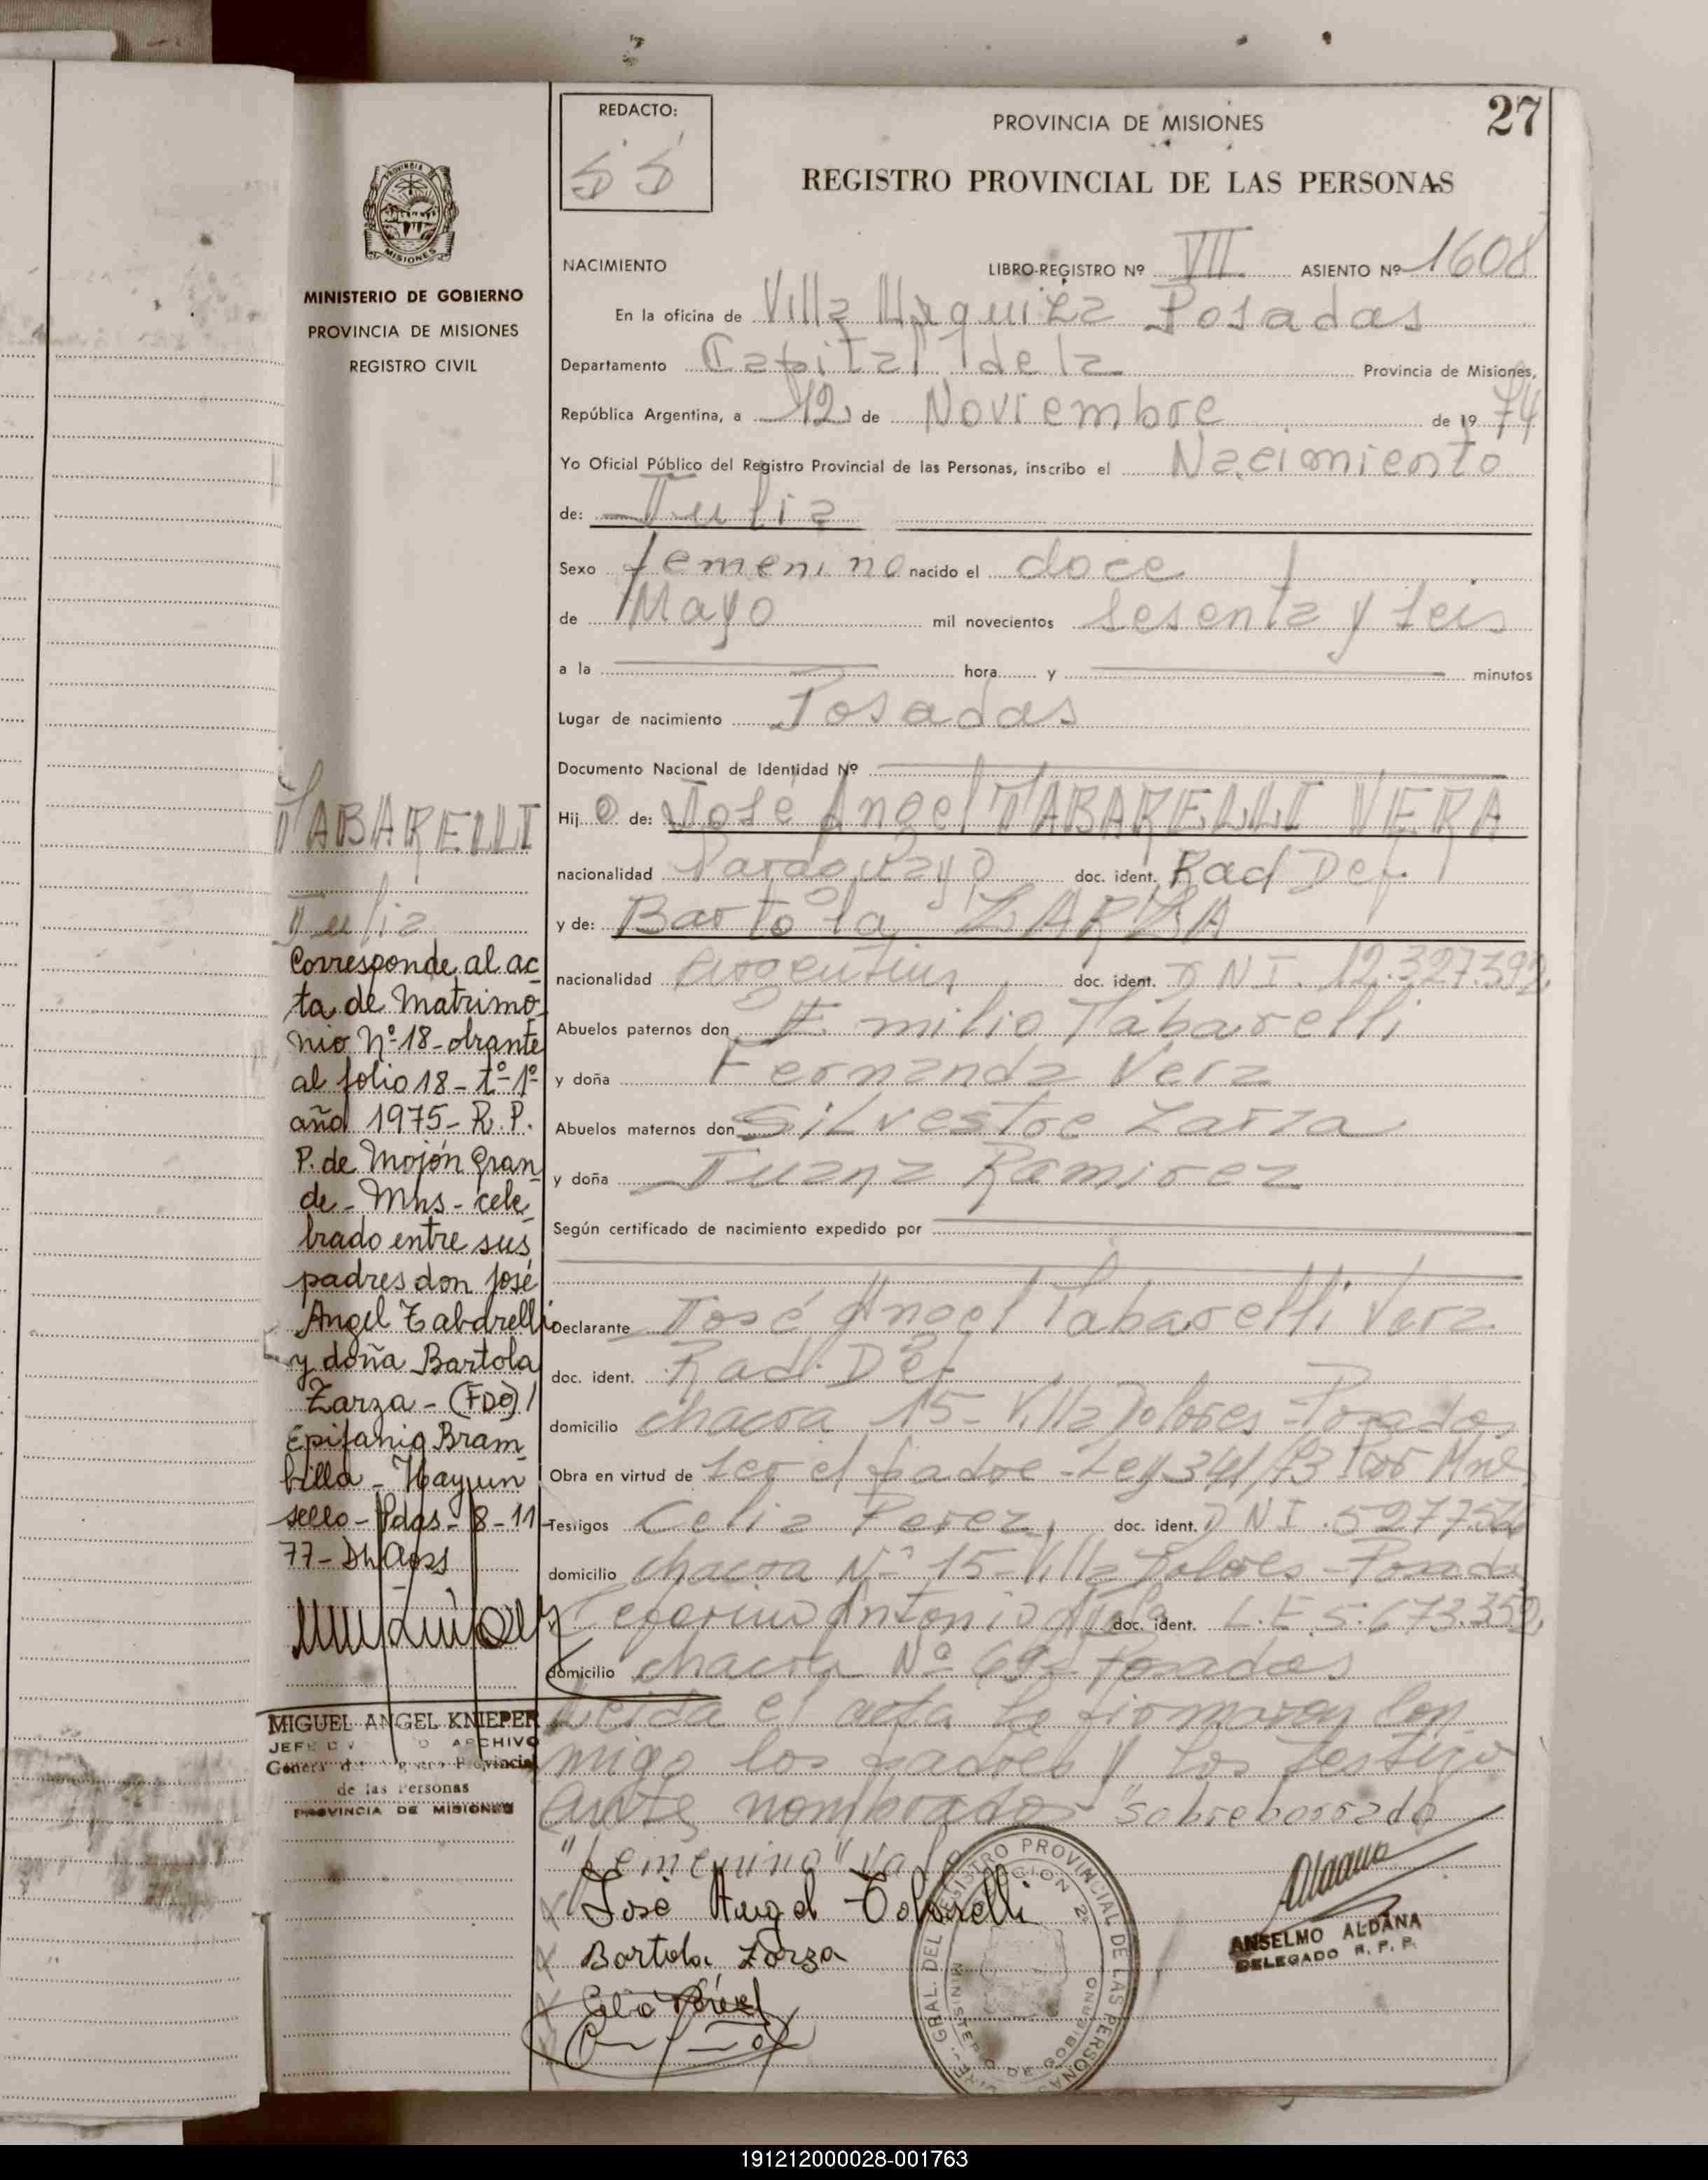 27
REDACTO:
55
PROVINCIA DE MISIONES
REGISTRO PROVINCIAL DE LAS PERSONAS
PROVINCIA DE MISIONES
MINISTERIO DE GOBIERNO
PROVINCIA DE MISIONES
REGISTRO CIVIL
TABARELLI
Julia
Corresponde al ac-
ta de Matrimo-
nio Nº 18 - obrante
al folio 18 - tº 1º
año 1975 - R. P.
P. de Mojón Gran
de - Mns - cele-
brado entre sus
padres don José
Angel Tabarelli
y doña Bartola
Zarza - (FDO) /
Epifanio Bram-
billa - Hay un
sello - Pdas - 8 - 11
77 -
MIGUEL ANGEL KNIEPER
JEFE ARCHIVO
Provincial
de las Personas
PROVINCIA DE MISIONES
NACIMIENTO LIBRO-REGISTRO Nº VII ASIENTO Nº 1608
En la oficina de Villa Urquiza Posadas
Departamento Capital de la Provincia de Misiones,
República Argentina, a 12 de Noviembre de 1974
Yo Oficial Público del Registro Provincial de las Personas, inscribo el Nacimiento
de: Julia
Sexo femenino nacido el doce
de Mayo mil novecientos sesenta y seis
a la hora y minutos
Lugar de nacimiento Posadas
Documento Nacional de Identidad Nº
Hij a de: José Angel TABARELLI VERA
nacionalidad Paraguayo doc. ident. Rad Def.
y de: Bartola ZARZA
nacionalidad argentina doc. ident. D N I. 12.327.392
Abuelos paternos don Emilio Tabarelli
y doña Fernanda Vera
Abuelos maternos don Silvestre Zarza
y doña Juana Ramirez
Según certificado de nacimiento expedido por
Declarante José Angel Tabarelli Vera
doc. ident. Rad. Def
domicilio chacra 15 - Villa Dolores - Posadas
Obra en virtud de ser el padre - Ley 341/
Testigos Celia Perez, doc. ident. D N I.
domicilio chacra Nº 15 - Villa Dolores - Posadas
Ceferino Antonio doc. ident. L. E. 5.673.352
domicilio chacra Nº 69 - Posadas
Leida el acta la firmaron con
migo los padres y los testigo
ante nombrados "Sobreborrado
"femenino" vale
José Angel Tabarelli
Bartola Zarza
Celia Pérez
DEL REGISTRO PROVINCIAL DE LAS PERSONAS
MINISTERIO DE GOBIERNO
ANSELMO ALDANA
DELEGADO R. P. P.
191212000028-001763